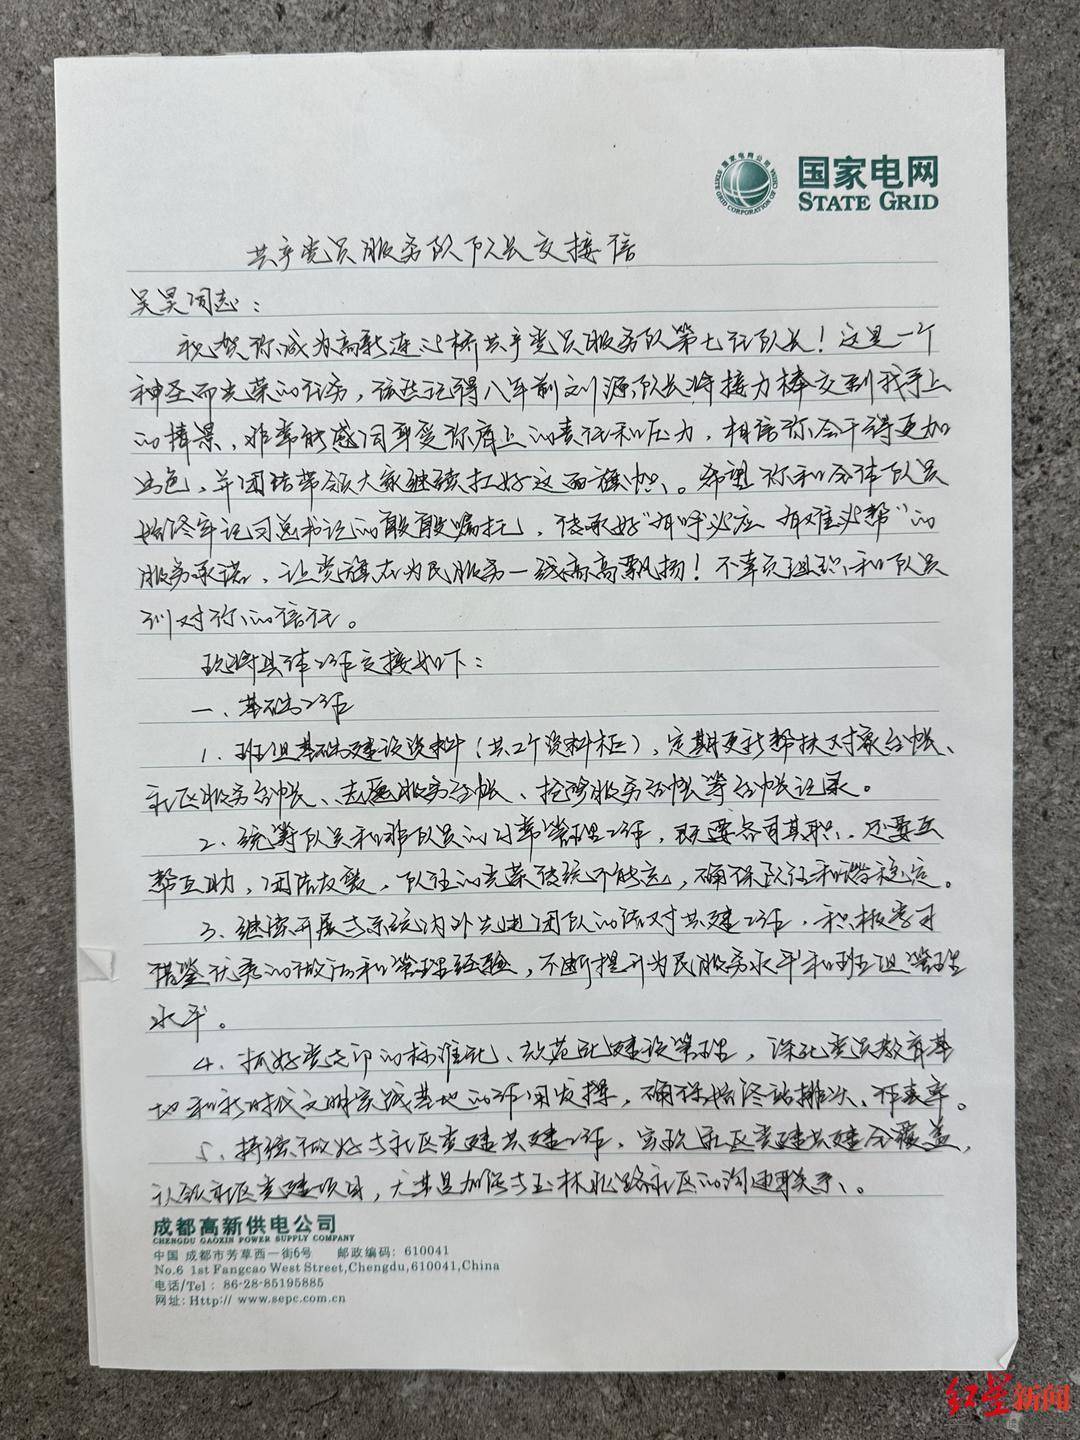 国家电网
STATE GRID
共产党员服务队队长交接信
吴昊同志：
祝贺你成为高新连心桥共产党员服务队第七任队长！这是一个
神圣而光荣的任务，依然记得八年前刘源队长将接力棒交到我手上
的情景，非常能感同身受你肩上的责任和压力，相信你会干得更加
出色，并团结带领大家继续扛好这面旗帜。希望你和全体队员
始终牢记习总书记的殷殷嘱托，传承好“有呼必应 有难必帮”的
服务承诺，让党旗在为民服务一线高高飘扬！不辜负组织和队员
们对你的信任。
现将具体工作交接如下：
一、基础工作
1、班组基础建设资料（共2个资料柜），定期更新帮扶对象台帐、
社区服务台帐、志愿服务台帐、抢修服务台帐等台帐记录。
2、统筹队员和非队员的日常管理工作，既要各司其职，还要互
帮互助，团结友爱，队伍的光荣传统不能丢，确保队伍和谐稳定。
3、继续开展与系统内外先进团队的结对共建工作，积极学习
借鉴优秀的做法和管理经验，不断提升为民服务水平和班组管理
水平。
4、抓好党支部的标准化、规范化建设管理，深化党员教育基
地和新时代文明实践基地的作用发挥，确保始终站排头、作表率。
5、持续做好与社区党建共建工作，实现社区党建共建全覆盖，
认领社区党建项目，尤其是加强与玉林北路社区的沟通联系。
成都高新供电公司
CHENGDU GAOXIN POWER SUPPLY COMPANY
中国 成都市芳草西一街6号 邮政编码：610041
No.6 1st Fangcao West Street,Chengdu,610041,China
电话/Tel：86-28-85195885
网址：Http:// www.sepc.com.cn
红星新闻